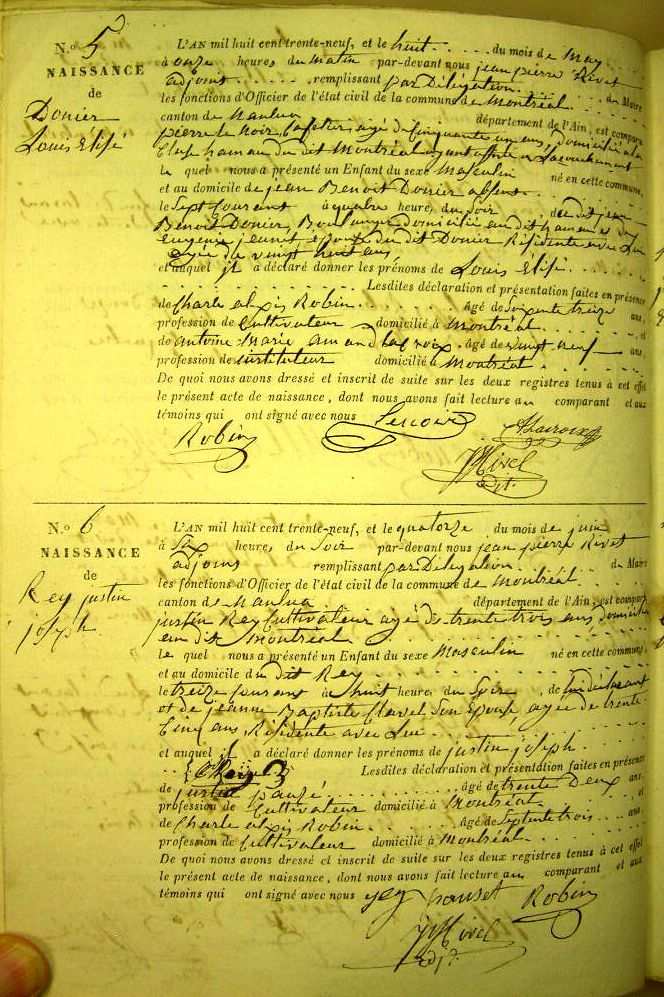 N.º 5
NAISSANCE
de
Donier
Louis Elisé
L'AN mil huit cent trente-neuf, et le huit du mois de May
à onze heures du Matin par-devant nous jean pierre Rivet
adjoint remplissant par Délégation du Maire
les fonctions d'Officier de l'état civil de la commune de Montréal
canton de Nantua département de l'Ain, est comparu
pierre le noir, Cafetier agé de Cinquante un ans, domicilié à la
Cluse hameau du dit Montréal ayant assisté à Lacouchement
le quel nous a présenté un Enfant du sexe Masculin né en cette commune,
et au domicile de jean Benoit Donier absent
le Sept Courant à quatre heures du Soir de dit jean
Benoit Donier, Boulanger domicilié au dit hameau et de
Eugenie jeanet épouse du dit Donier Résidente avec Lui
agée de vingt huit ans
et auquel il a déclaré donner les prénoms de Louis Elisé
Lesdites déclaration et présentation faites en présence
de Charle alexis Robin âgé de Soixente treize ans,
profession de Cultivateur domicilié à Montréal et
de antoine Marie amand Lacroix âgé de vingt neuf ans,
profession de instituteur domicilié à Montréal
De quoi nous avons dressé et inscrit de suite sur les deux registres tenus à cet effet
le présent acte de naissance, dont nous avons fait lecture au comparant et aux
témoins qui ont signé avec nous Lenoir
Robin ALacroix
JPRivet
adjt.
N.º 6
NAISSANCE
de
Rey justin
joseph
L'AN mil huit cent trente-neuf, et le quatorze du mois de juin
à Six heures du Soir par-devant nous jean pierre Rivet
adjoint remplissant par Délégation du Maire
les fonctions d'Officier de l'état civil de la commune de Montréal
canton de Nantua département de l'Ain, est comparu
justin Rey Cultivateur agé de trente trois ans domicilié
au dit Montréal
le quel nous a présenté un Enfant du sexe Masculin né en cette commune,
et au domicile du dit Rey
le treize Courant à huit heures du Soir, de lui déclarant
et de jeanne Baptiste Clavel Son Epouse, agée de trente
Cinq ans Résidente avec Lui
et auquel il a déclaré donner les prénoms de justin joseph
Lesdites déclaration et présentation faites en présence
de justin âgé de trente Deux ans,
profession de Cultivateur domicilié à Montréal et
de Charle alexis Robin âgé de Septente trois ans,
profession de Cultivateur domicilié à Montréal
De quoi nous avons dressé et inscrit de suite sur les deux registres tenus à cet effet
le présent acte de naissance, dont nous avons fait lecture au comparant et aux
témoins qui ont signé avec nous Rey Robin
JPRivet
adjt.